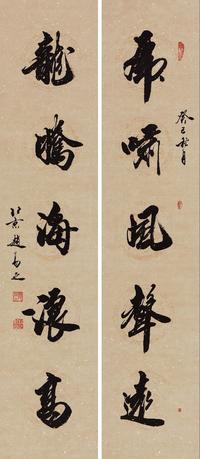 癸巳秋月
虎嘯風聲遠
龍騰海浪高
北京趙之